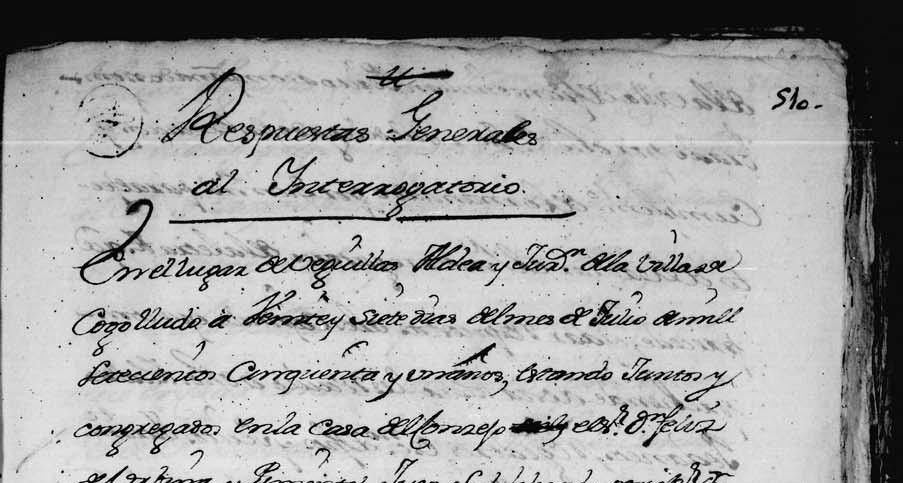 510.
Respuestas Generales
al Interrogatorio
En el lugar de Veguillas Aldea y Jurⁿ. de la Villa de
Cogolludo a Veinte y Siete dias del mes de Julio de mill
Setecientos Cinquenta y un años, estando Juntos y
congregados en la Casa del Conzejo el Sʳ. Dⁿ. felix